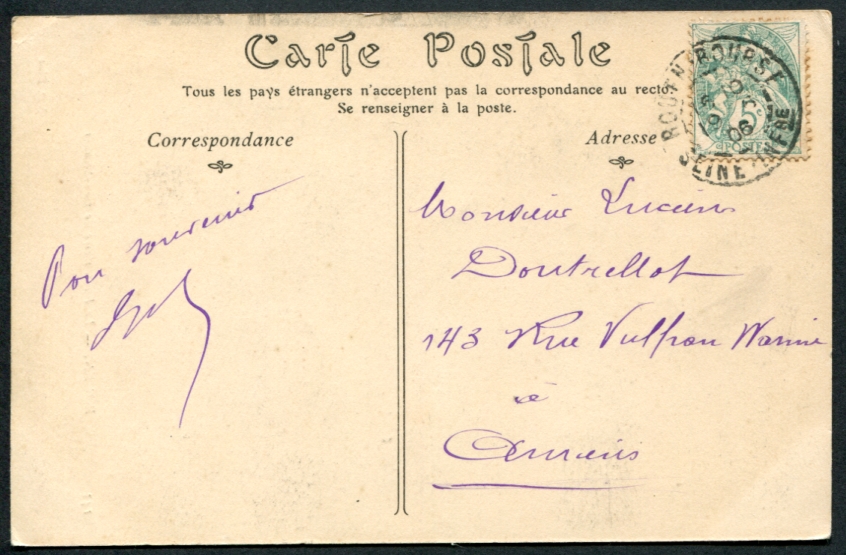 Carte Postale
Tous les pays étrangers n'acceptent pas la correspondance au recto.
Se renseigner à la poste.
Correspondance
Adresse
ROUEN BOURSE
06
SEINE INFRE
5c
POSTES
Bon souvenir
Monsieur Lucien
Doutrellot
143 Rue Vulfran Warme
à
Amiens